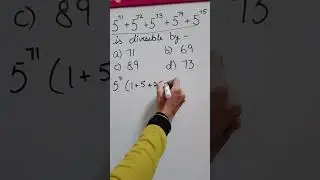 5⁷¹+5⁷²+5⁷³+5⁷⁴+5⁷⁵
is divisible by -
a) 71 b) 69
c) 89 d) 73
5⁷¹(1+5+